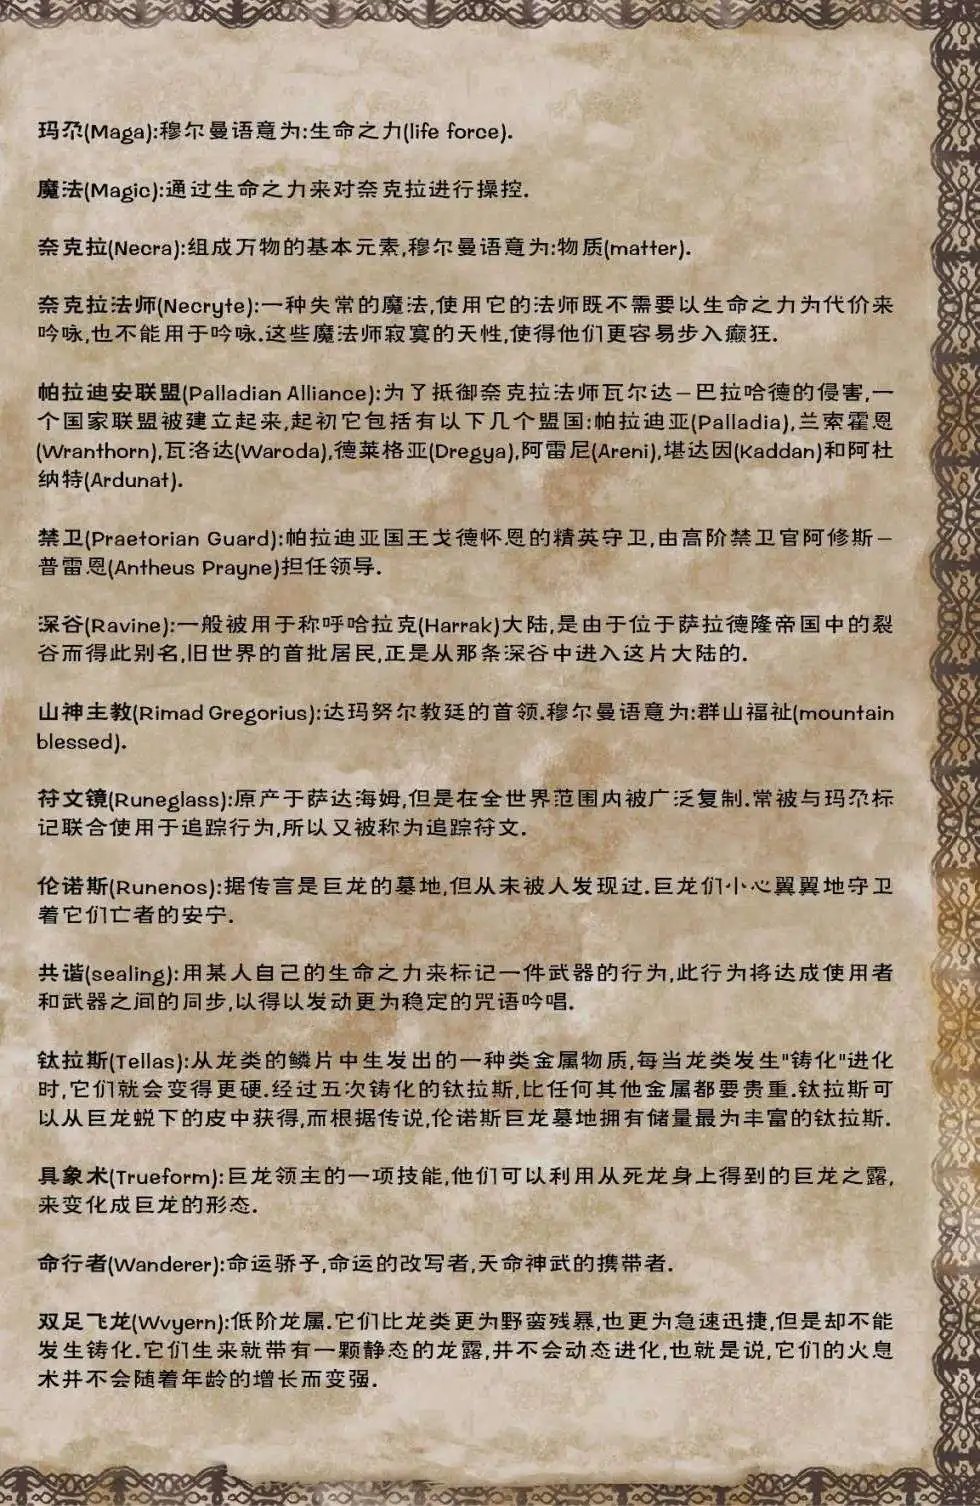 玛尕(Maga):穆尔曼语意为:生命之力(life force).
魔法(Magic):通过生命之力来对奈克拉进行操控.
奈克拉(Necra):组成万物的基本元素,穆尔曼语意为:物质(matter).
奈克拉法师(Necryte):一种失常的魔法,使用它的法师既不需要以生命之力为代价来
吟咏,也不能用于吟咏.这些魔法师寂寞的天性,使得他们更容易步入癫狂.
帕拉迪安联盟(Palladian Alliance):为了抵御奈克拉法师瓦尔达–巴拉哈德的侵害,一
个国家联盟被建立起来,起初它包括有以下几个盟国:帕拉迪亚(Palladia),兰索霍恩
(Wranthorn),瓦洛达(Waroda),德莱格亚(Dregya),阿雷尼(Areni),堪达因(Kaddan)和阿杜
纳特(Ardunat).
禁卫(Praetorian Guard):帕拉迪亚国王戈德怀恩的精英守卫,由高阶禁卫官阿修斯–
普雷恩(Antheus Prayne)担任领导.
深谷(Ravine):一般被用于称呼哈拉克(Harrak)大陆,是由于位于萨拉德隆帝国中的裂
谷而得此别名,旧世界的首批居民,正是从那条深谷中进入这片大陆的.
山神主教(Rimad Gregorius):达玛努尔教廷的首领.穆尔曼语意为:群山福祉(mountain
blessed).
符文镜(Runeglass):原产于萨达海姆,但是在全世界范围内被广泛复制.常被与玛尕标
记联合使用于追踪行为,所以又被称为追踪符文.
伦诺斯(Runenos):据传言是巨龙的墓地,但从未被人发现过.巨龙们小心翼翼地守卫
着它们亡者的安宁.
共谐(sealing):用某人自己的生命之力来标记一件武器的行为,此行为将达成使用者
和武器之间的同步,以得以发动更为稳定的咒语吟唱.
钛拉斯(Tellas):从龙类的鳞片中生发出的一种类金属物质,每当龙类发生"铸化"进化
时,它们就会变得更硬.经过五次铸化的钛拉斯,比任何其他金属都要贵重.钛拉斯可
以从巨龙蜕下的皮中获得,而根据传说,伦诺斯巨龙墓地拥有储量最为丰富的钛拉斯.
具象术(Trueform):巨龙领主的一项技能,他们可以利用从死龙身上得到的巨龙之露,
来变化成巨龙的形态.
命行者(Wanderer):命运骄予,命运的改写者,天命神武的携带者.
双足飞龙(Wvyern):低阶龙属.它们比龙类更为野蛮残暴,也更为急速迅捷,但是却不能
发生铸化.它们生来就带有一颗静态的龙露,并不会动态进化,也就是说,它们的火息
术并不会随着年龄的增长而变强.